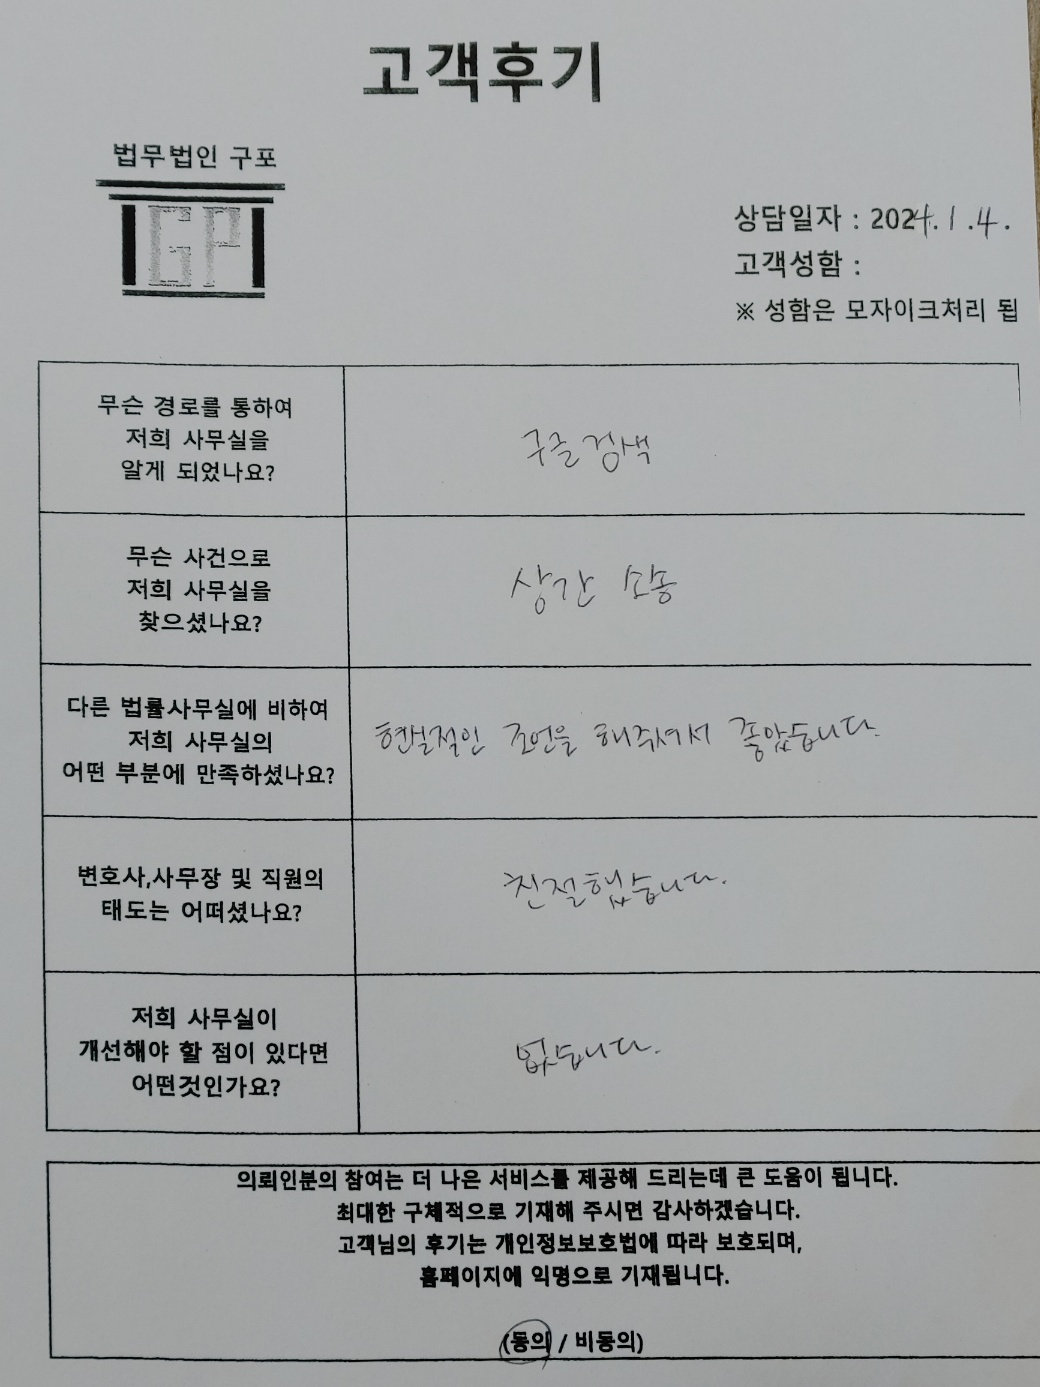 고객후기
법무법인 구포
GP
상담일자 : 2024.1.4.
고객성함 :
※ 성함은 모자이크처리 됩
무슨 경로를 통하여
저희 사무실을
알게 되었나요?
구글검색
무슨 사건으로
저희 사무실을
찾으셨나요?
상간 소송
다른 법률사무실에 비하여
저희 사무실의
어떤 부분에 만족하셨나요?
현실적인 조언을 해주셔서 좋았습니다.
변호사,사무장 및 직원의
태도는 어떠셨나요?
친절했습니다.
저희 사무실이
개선해야 할 점이 있다면
어떤것인가요?
없습니다.
의뢰인분의 참여는 더 나은 서비스를 제공해 드리는데 큰 도움이 됩니다.
최대한 구체적으로 기재해 주시면 감사하겠습니다.
고객님의 후기는 개인정보보호법에 따라 보호되며,
홈페이지에 익명으로 기재됩니다.
(동의 / 비동의)